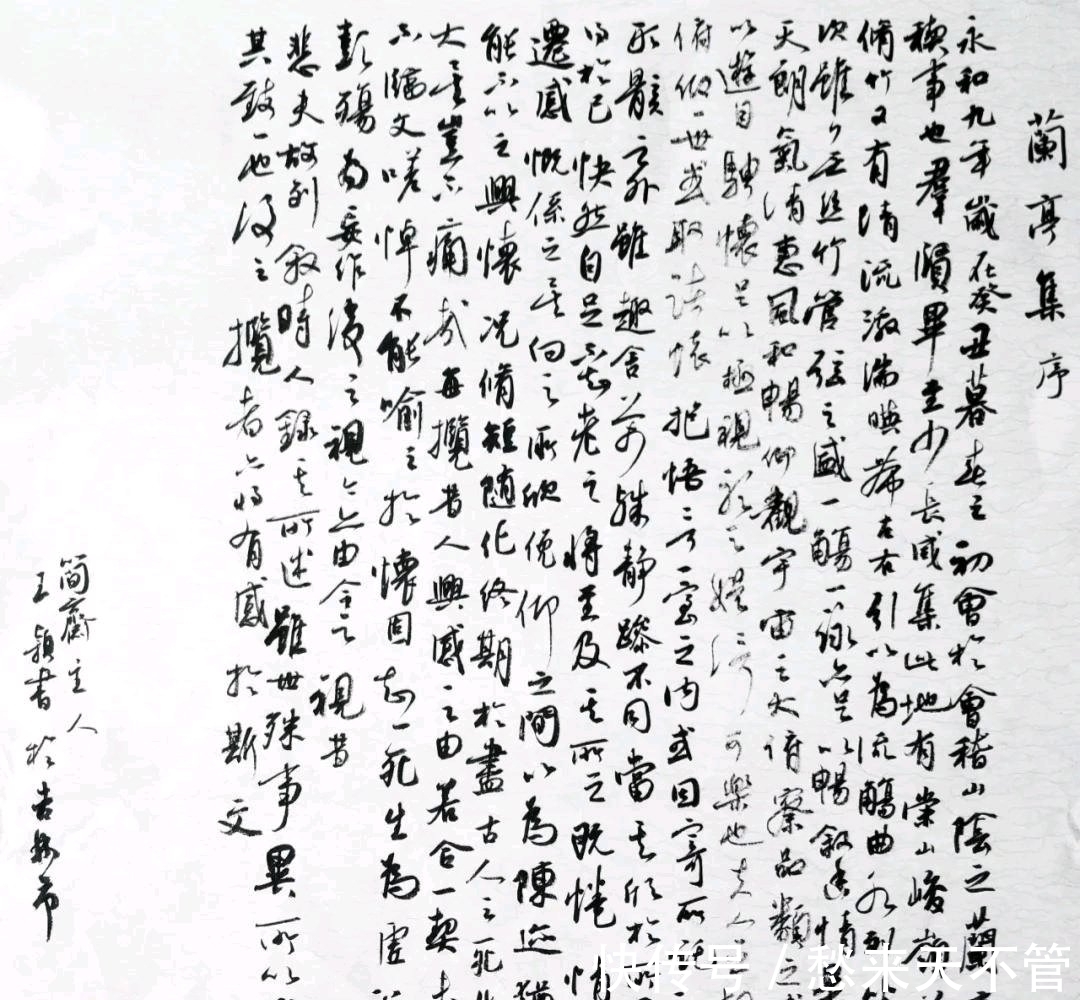 蘭亭集序
永和九年歲在癸丑暮春之初會於會稽山陰之蘭
稧事也羣賢畢至少長咸集此地有崇山峻嶺
脩竹又有清流激湍暎帶左右引以為流觴曲水列
次雖無絲竹管弦之盛一觴一詠亦足以暢敘幽情
天朗氣清惠風和暢仰觀宇宙之大俯察品類之盛
以遊目騁懷足以極視聽之娛信可樂也夫人之相
俯仰一世或取諸懷抱悟言一室之內或因寄所託
形骸之外雖趣舍萬殊靜躁不同當其欣於所
得於己快然自足不知老之將至及其所之既惓情
遷感慨係之矣向之所欣俛仰之間以為陳迹猶
能不以之興懷況脩短隨化終期於盡古人云死生
大矣豈不痛哉每攬昔人興感之由若合一契未
不臨文嗟悼不能喻之於懷固知一死生為虛
彭殤為妄作後之視今亦由今之視昔
悲夫故列敘時人錄其所述雖世殊事異所以
其致一也後之攬者亦將有感於斯文
简齋主人
王穎書於
快传号 / 愁来天不管